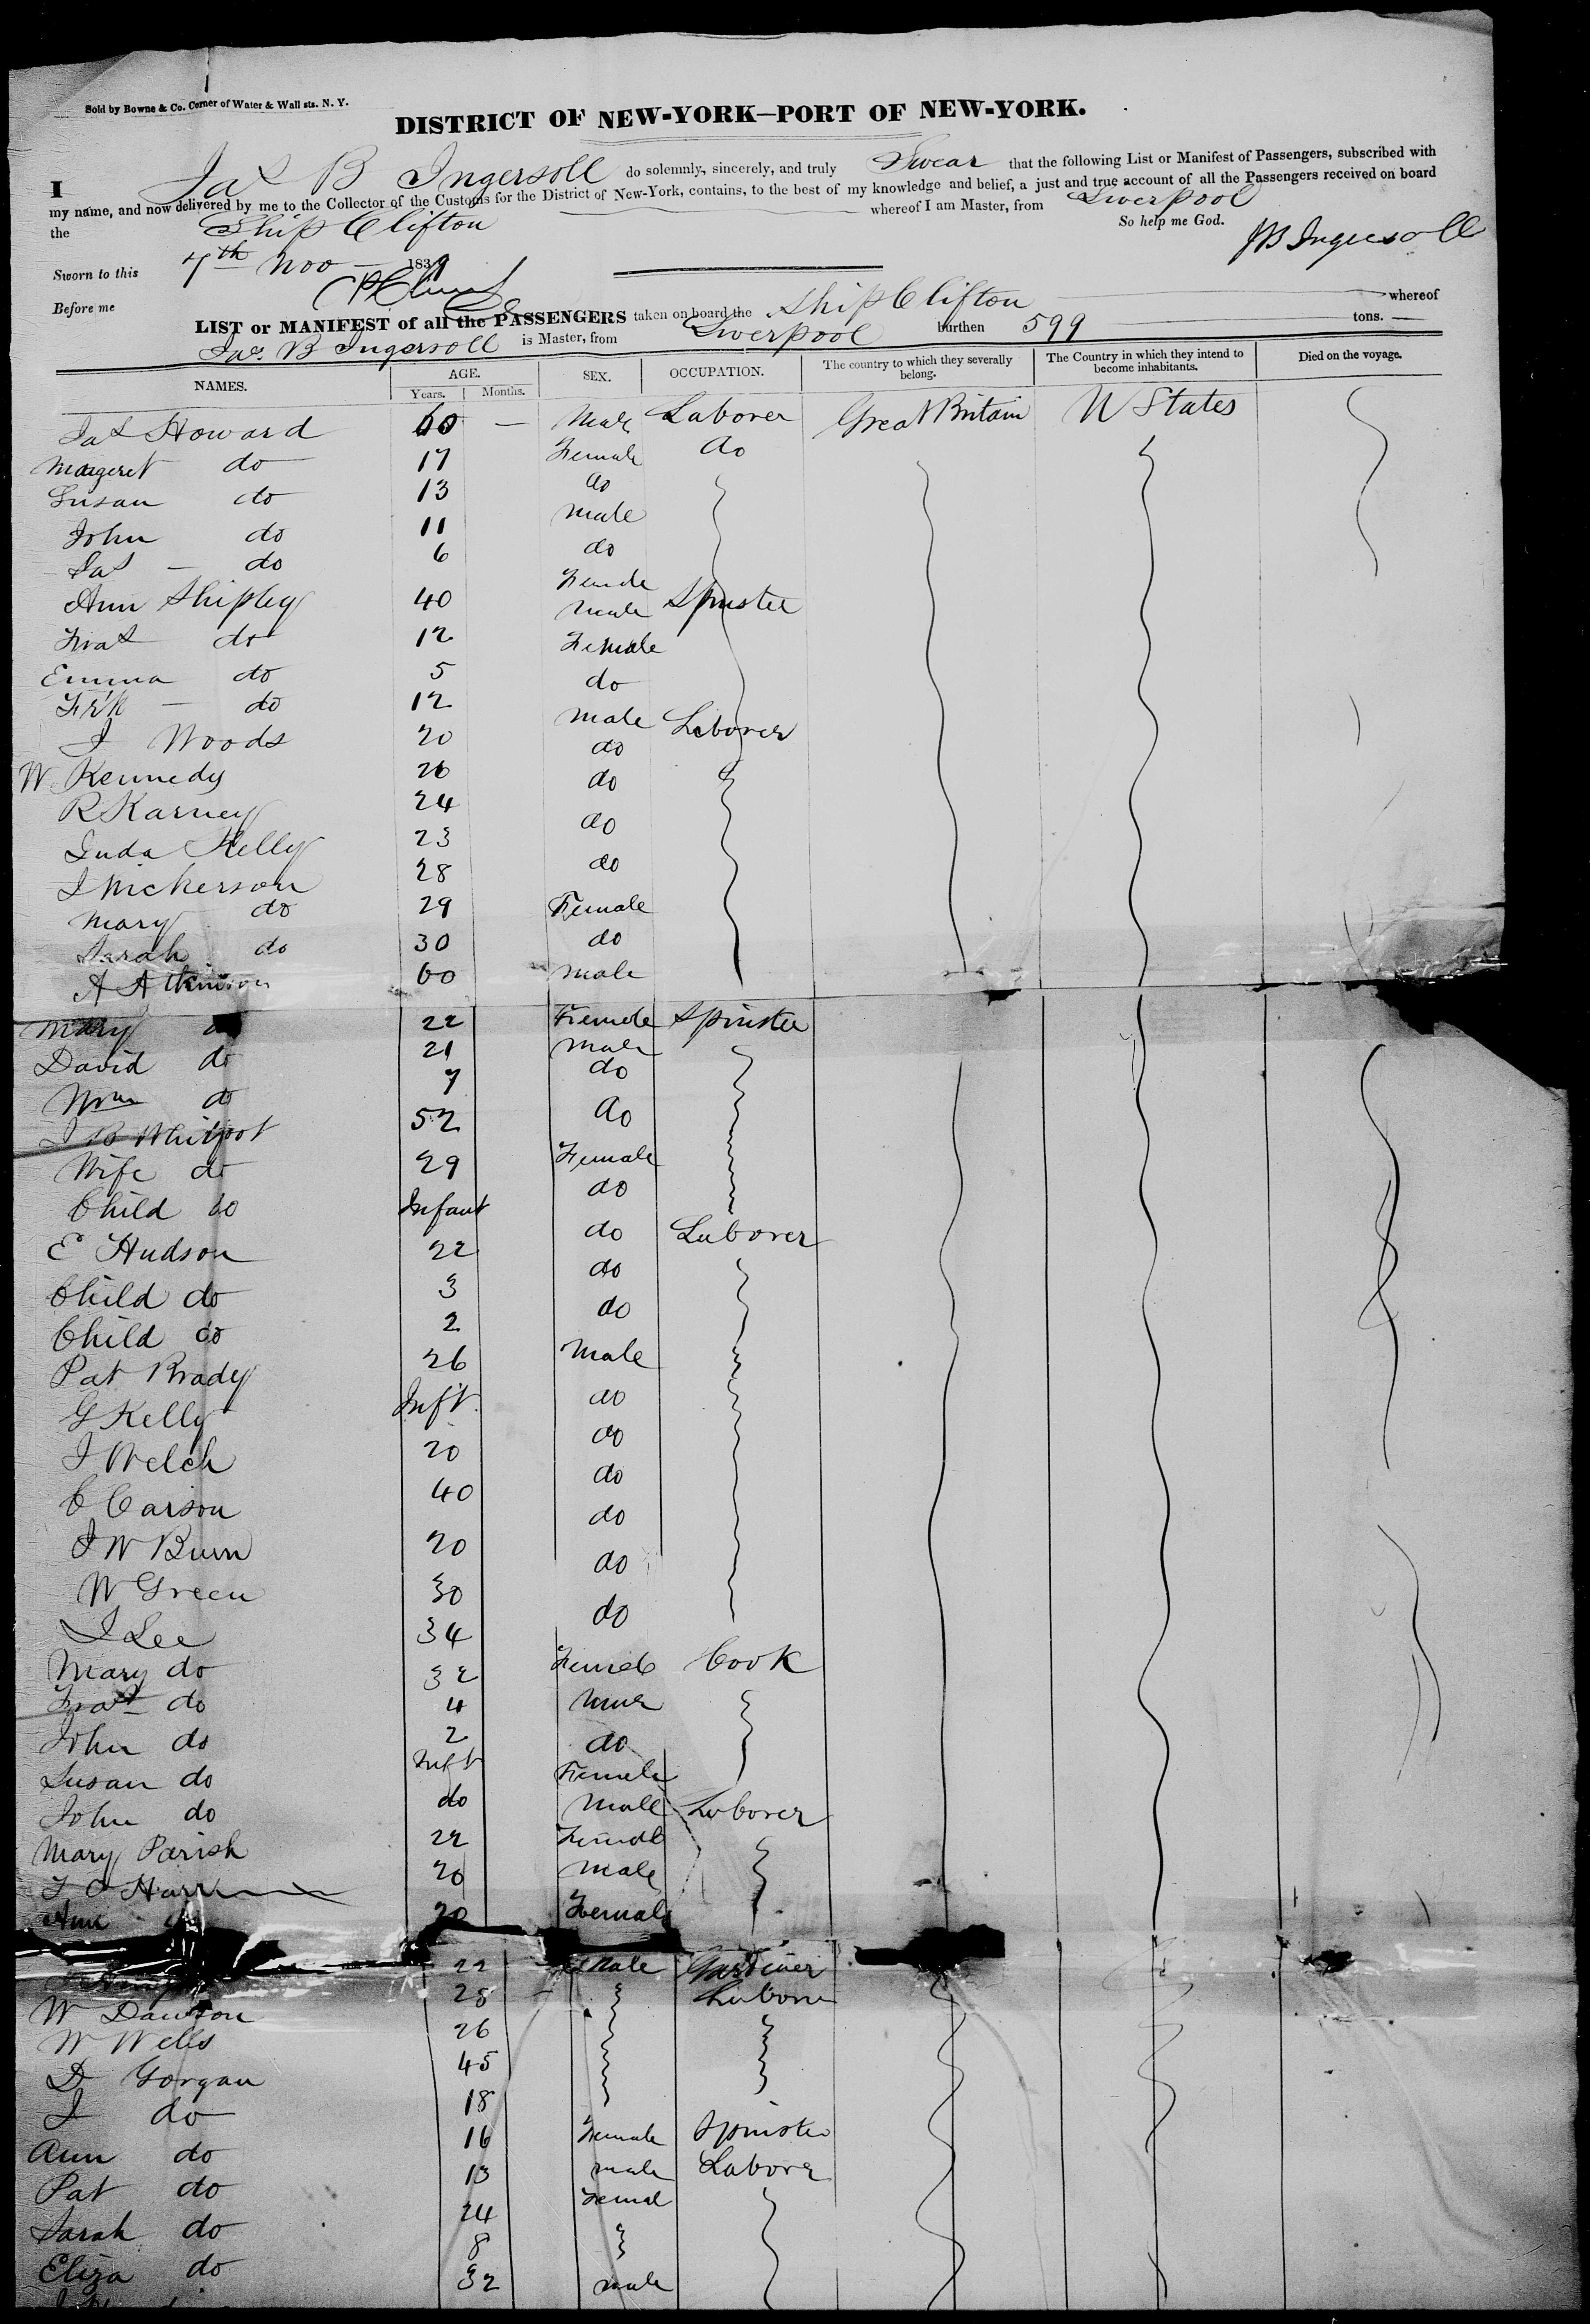 Sold by Bowne & Co. Corner of Water & Wall sts. N. Y.
DISTRICT OF NEW-YORK—PORT OF NEW-YORK.
I Jas B Ingersoll do solemnly, sincerely, and truly Swear that the following List or Manifest of Passengers, subscribed with
my name, and now delivered by me to the Collector of the Customs for the District of New-York, contains, to the best of my knowledge and belief, a just and true account of all the Passengers received on board
the Ship Clifton whereof I am Master, from Liverpool
So help me God.
Sworn to this 7th Nov 1839 JB Ingersoll
Before me
LIST or MANIFEST of all the PASSENGERS taken on board the Ship Clifton whereof
Jas. B Ingersoll is Master, from Liverpool burthen 599 tons.
NAMES. AGE. SEX. OCCUPATION. The country to which they severally belong. The Country in which they intend to become inhabitants. Died on the voyage.
Years. Months.
Jas Howard 60 — Male Laborer Great Britain U States
Margeret do 17 Female do
Susan do 13 do
John do 11 male
Jas — do 6 do
Ann Shipley 40 Female Spinster
Thos do 12 male
Emma do 5 Female
Fr'k — do 12 do
J Woods 20 male Laborer
W Kennedy 26 do
R Karney 24 do
Juda Kelly 23 do
J Nickerson 28 do
Mary do 29 Female
Sarah do 30 do
A Atkinson 60 male
Mary do 22 Female Spinster
David do 21 male
Wm do 7 do
J B Whitpot 52 do
Wife do 29 Female
Child do Infant do
E Hudson 22 do Laborer
Child do 3 do
Child do 2 do
Pat Brady 26 male
G Kelly Inft. do
J Welch 20 do
C Carson 40 do
J W Burn 20 do
W Green 30 do
J Lee 34 do
Mary do 32 Female Cook
Thos do 4 male
John do 2 do
Susan do Inft Female
John do do Male Laborer
Mary Parish 22 Female
20 male
Ann 20 Female
22 Male Gardiner
W Dawson 28 — Laborer
W Wells 26
D Gorgan 45
J do 18
Ann do 16 Female Spinster
Pat do 13 male Laborer
Sarah do 24 Femal
Eliza do 8
32 male